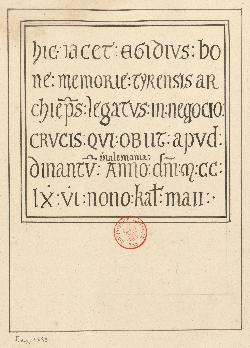 hic: iacet: Egidius: bo
ne: memorie: tyrensis ar
chiep̄s: legatus: in: negocio
crucis: qui obiit: apud:
dinantū: in alemania: Anno: dn̄i: m̄: cc:
lx̄: vi: nono: kal̄: maii: